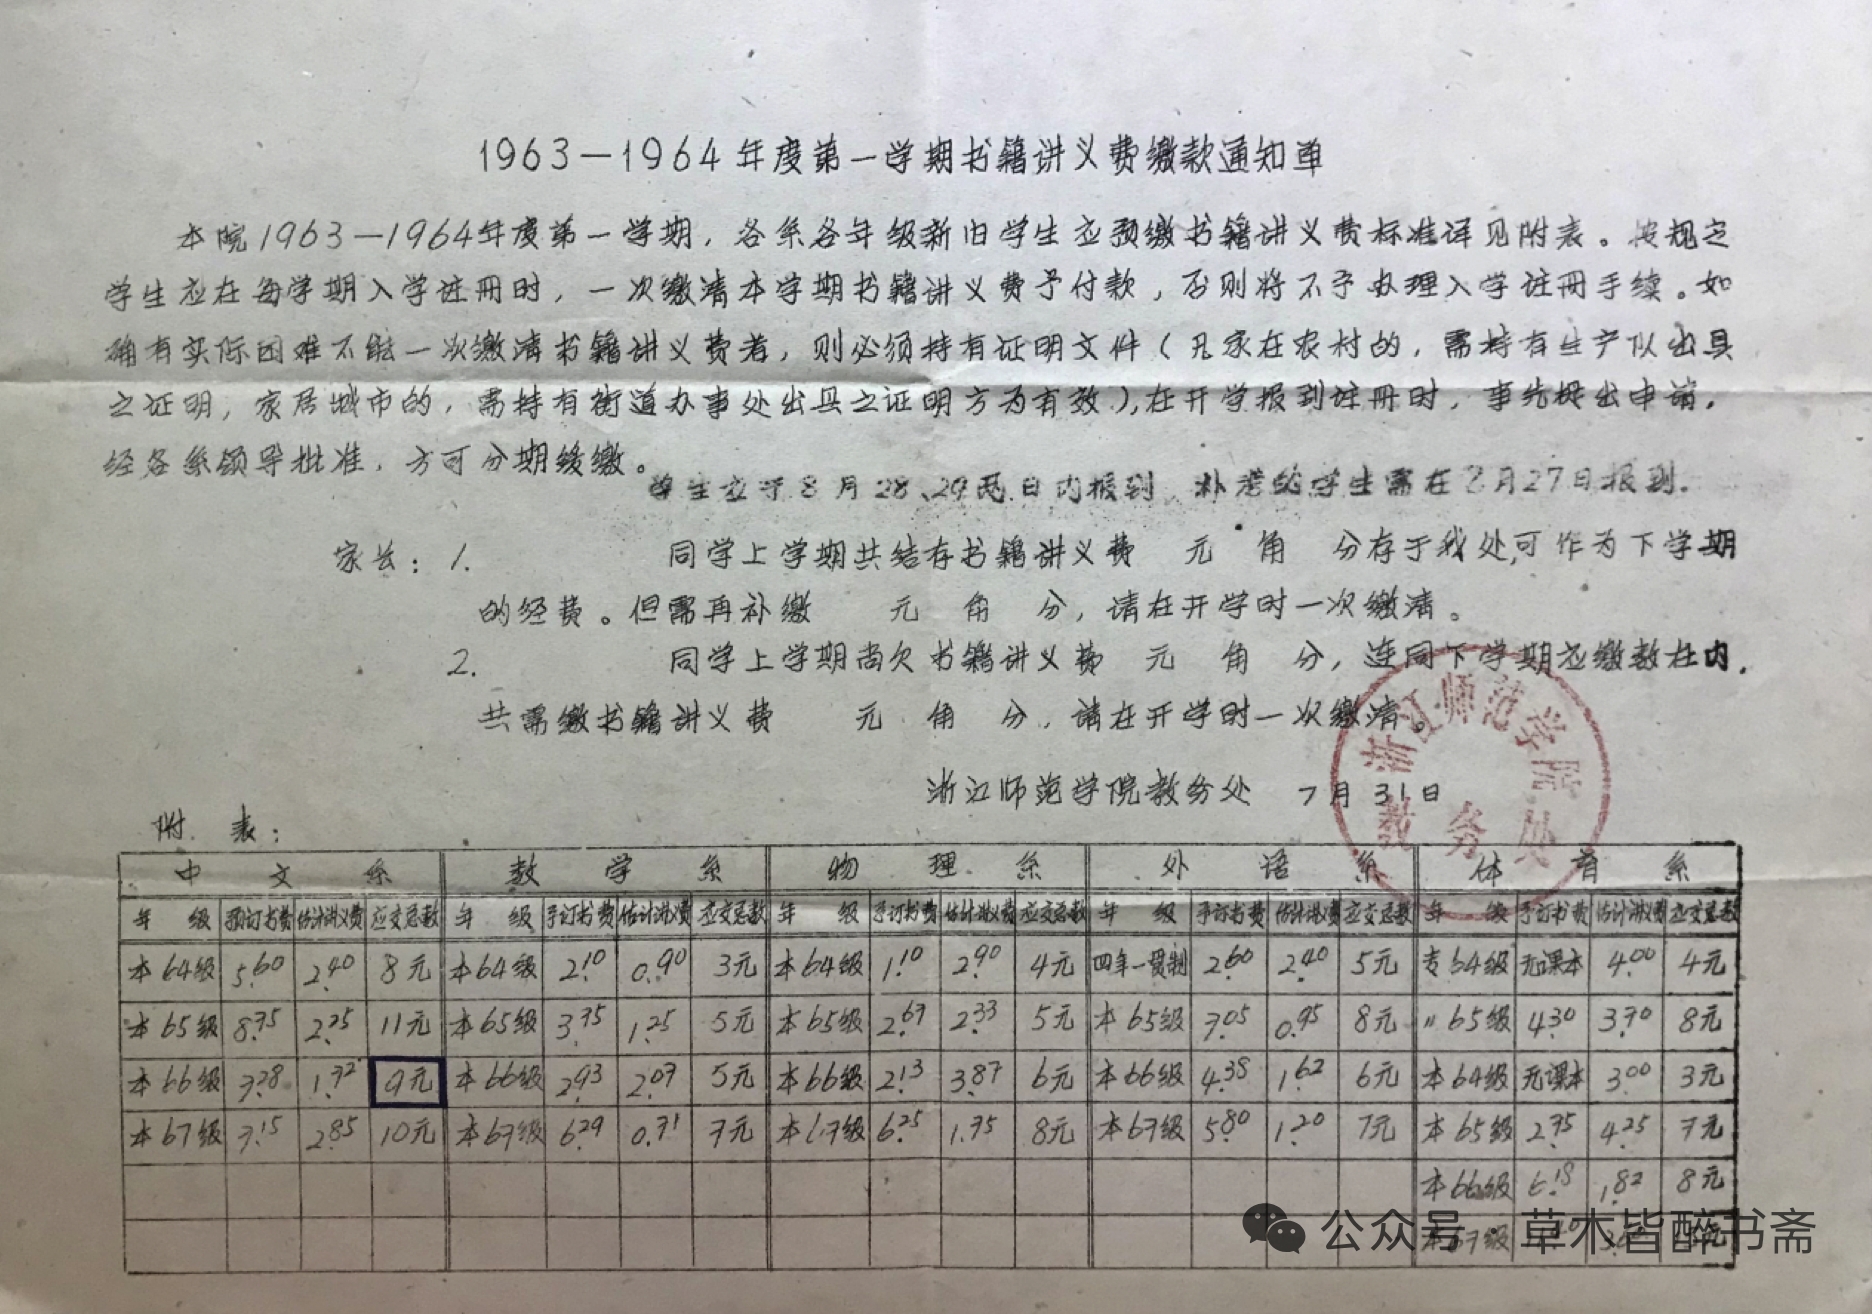 1963—1964年度第一学期书籍讲义费缴款通知单
本院1963—1964年度第一学期，各系各年级新旧学生应预缴书籍讲义费标准详见附表。按规定
学生应在每学期入学注册时，一次缴清本学期书籍讲义费予付款，否则将不予办理入学注册手续。如
确有实际困难不能一次缴清书籍讲义费者，则必须持有证明文件（凡家在农村的，需持有生产队出具
之证明，家居城市的，需持有街道办事处出具之证明方为有效），在开学报到注册时，事先提出申请，
经各系领导批准，方可分期缓缴。
学生应于8月28、29两日内报到 补考的学生需在8月27日报到.
家长：1. 同学上学期共结存书籍讲义费 元 角 分存于我处,可作为下学期
的经费。但需再补缴 元 角 分，请在开学时一次缴清。
2. 同学上学期尚欠书籍讲义费 元 角 分，连同下学期应缴数在内，
共需缴书籍讲义费 元 角 分，请在开学时一次缴清。
浙江师范学院教务处 7月31日
浙江师范学院
教务处
附表：
中文系 数学系 物理系 外语系 体育系
年级 预订书费 估计讲义费 应交总数 年级 予订书费 估计讲义费 应交总数 年级 予订书费 估计讲义费 应交总数 年级 予订书费 估计讲义费 应交总数 年级 予订书费 估计讲义费 应交总数
本64级 5.60 2.40 8元 本64级 2.10 0.90 3元 本64级 1.10 2.90 4元 四年一贯制 2.60 2.40 5元 专64级 无课本 4.00 4元
本65级 8.75 2.25 11元 本65级 3.75 1.25 5元 本65级 2.67 2.33 5元 本65级 7.05 0.95 8元 〃65级 4.30 3.70 8元
本66级 7.28 1.72 9元 本66级 2.93 2.07 5元 本66级 2.13 3.87 6元 本66级 4.38 1.62 6元 本64级 无课本 3.00 3元
本67级 7.15 2.85 10元 本67级 6.29 0.71 7元 本67级 6.25 1.75 8元 本67级 5.80 1.20 7元 本65级 2.75 4.25 7元
本66级 6.18 1.82 8元
本67级
公众号 草木皆醉书斋